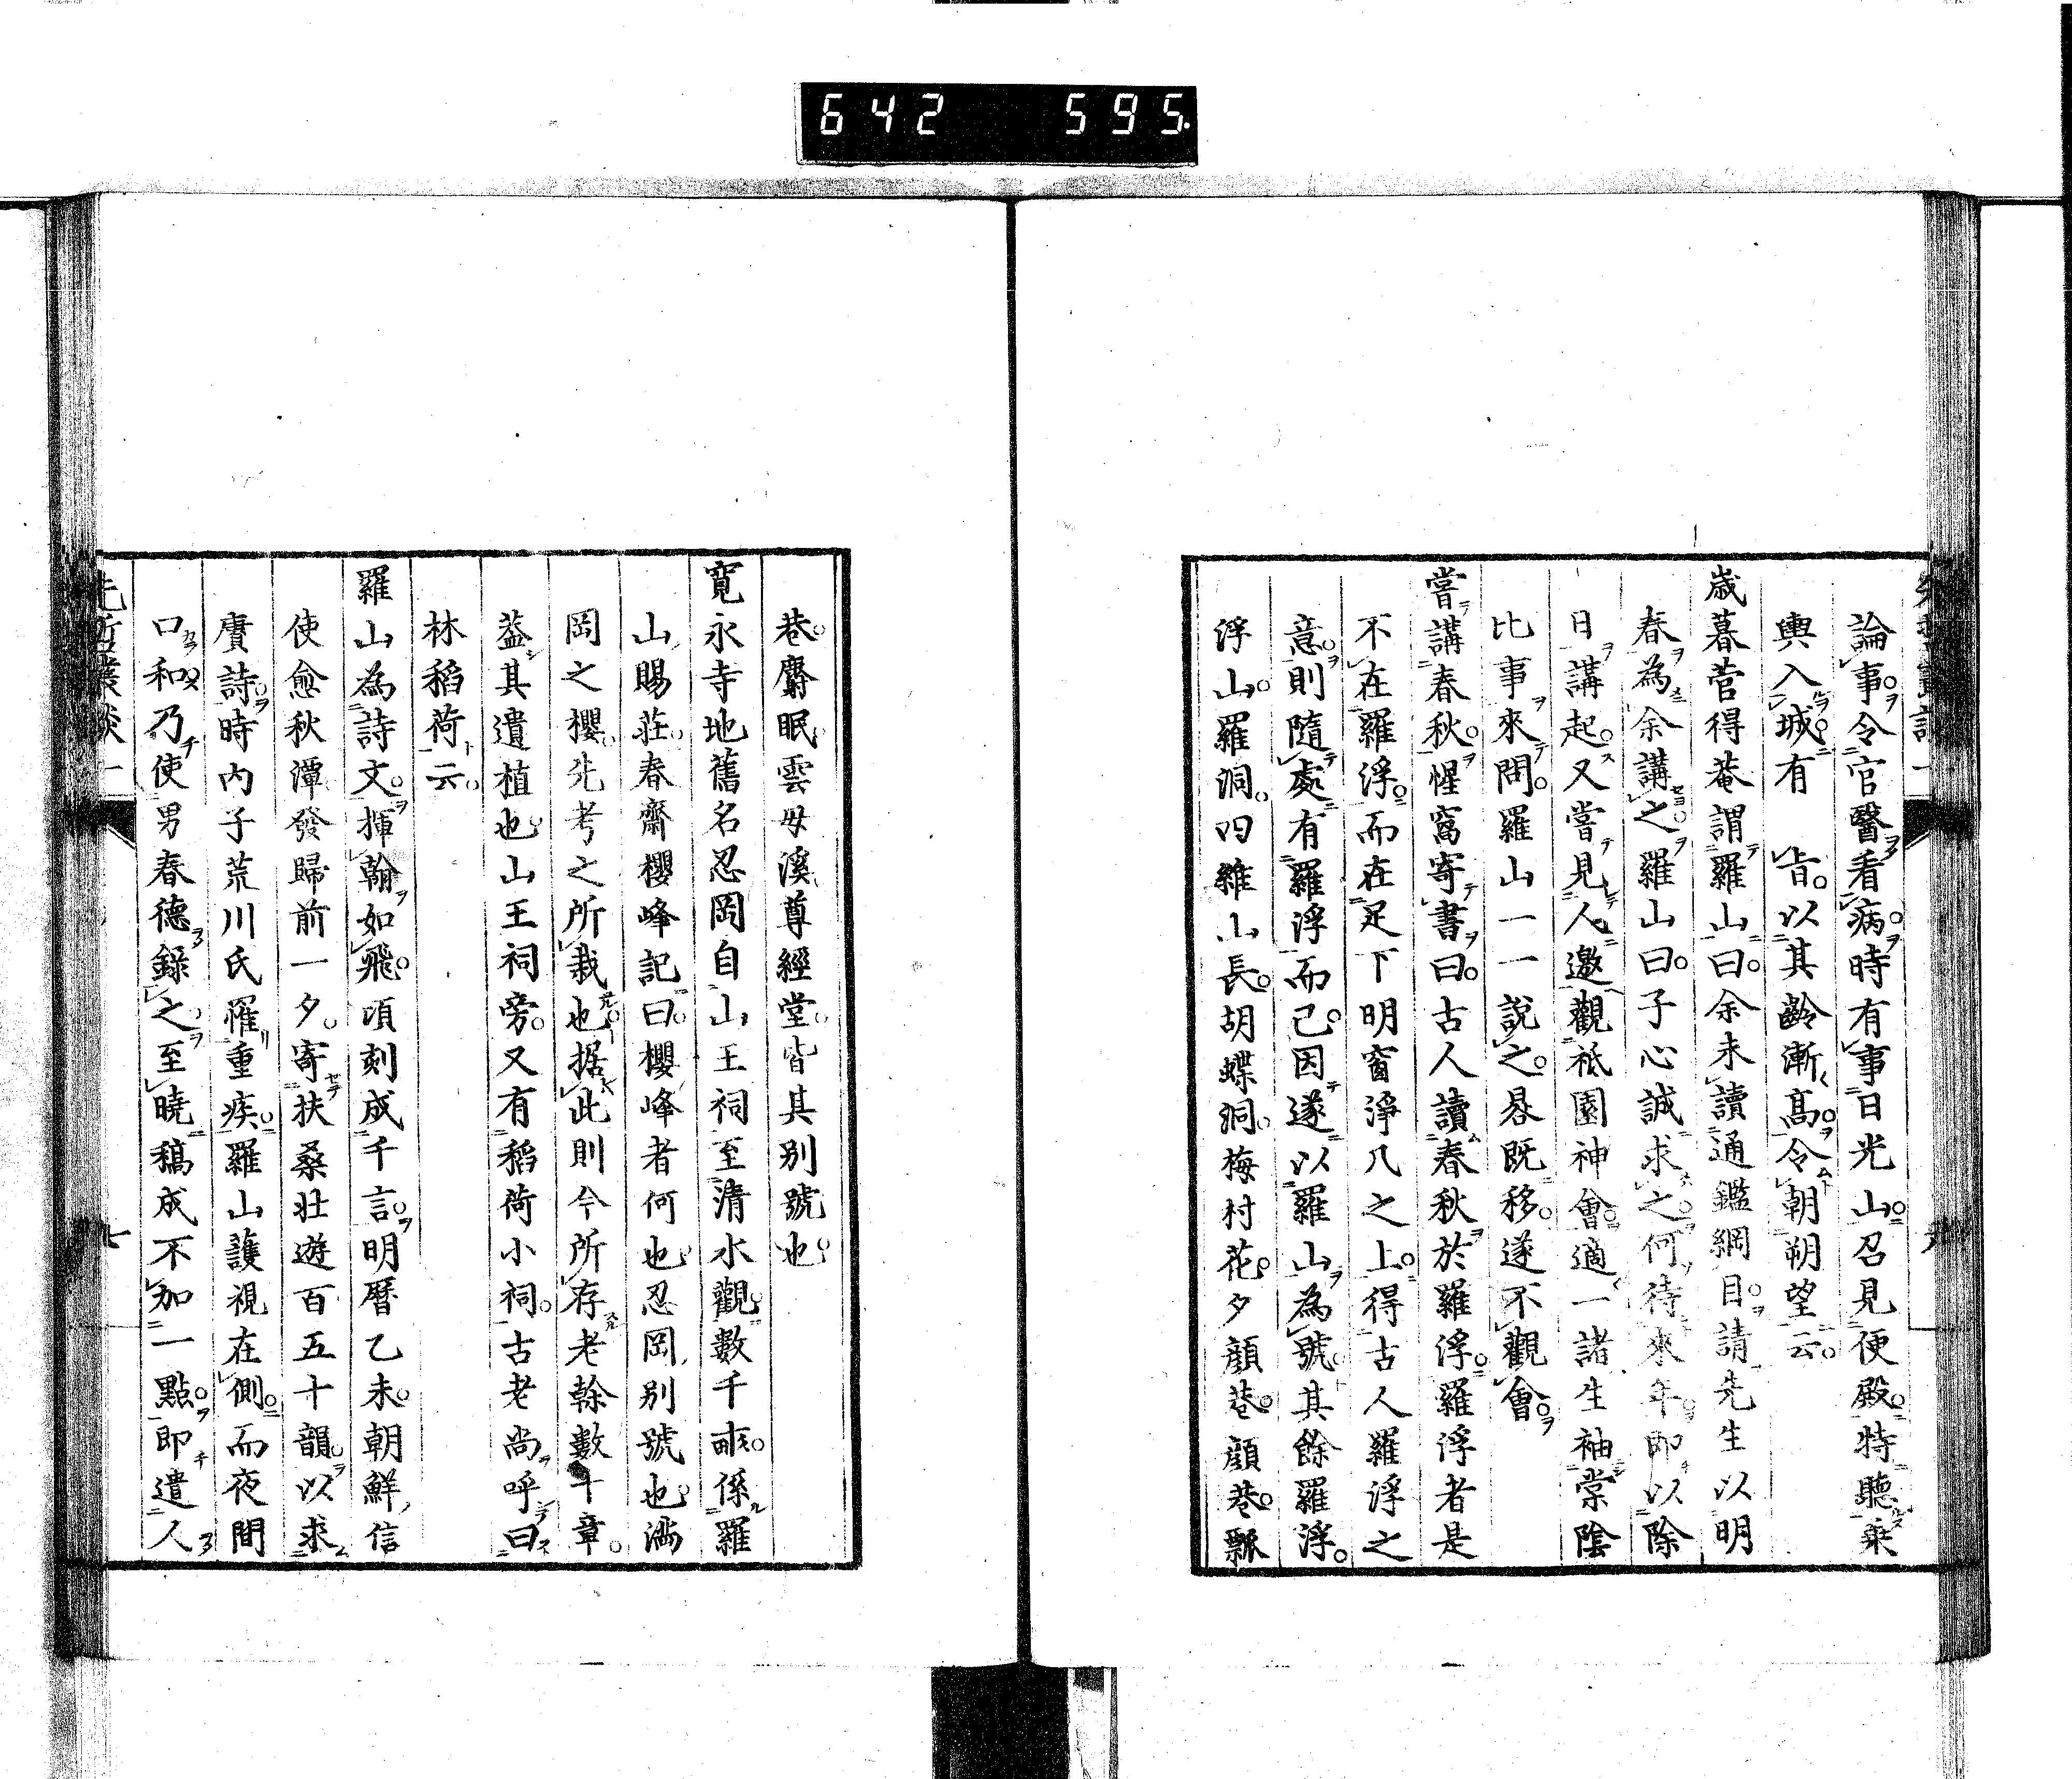 642 595.
論事。令官醫看病。時有事日光山。召見便殿。特聽乘
輿入城。有 旨。以其齡漸高。令朝朔望云。
歲暮菅得菴謂羅山曰。余未讀通鑑綱目。請先生以明
春為余講之。羅山曰。子心誠求之。何待來年。即以除
日講起。又嘗見人邀觀祇園神會。適一諸生袖棠陰
比事來問。羅山一一說之。晷既移。遂不觀會。
嘗講春秋。惺窩寄書曰。古人讀春秋於羅浮。羅浮者是
不在羅浮。而在足下明窗淨几之上。得古人羅浮之
意。則隨處有羅浮而已。因遂以羅山為號。其餘羅浮。
浮山。羅洞。四維山長。胡蝶洞。梅村花。夕顏巷。顏巷。瓢
巷。麝眠。雲母溪。尊經堂。皆其別號也。
寬永寺地舊名忍岡。自山王祠至清水觀。數千畝。係羅
山賜莊。春齋櫻峰記曰。櫻峰者何也。忍岡別號也。滿
岡之櫻。先考之所栽也。据此則今所存老榦數十章。
蓋其遺植也。山王祠旁。又有稻荷小祠。古老尚呼曰
林稻荷云。
羅山為詩文。揮翰如飛。頃刻成千言。明曆乙未。朝鮮信
使愈秋潭發歸前一夕。寄扶桑壯遊百五十韻。以求
賡詩。時內子荒川氏罹重疾。羅山護視在側。而夜間
口和。乃使男春德錄之。至曉稿成。不加一點。即遣人
先哲叢談 一
七